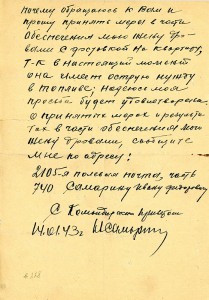 почему обращаюсь к Вам и
прошу принять меры в части
обеспечения мою жену дро-
вами с доставкой на квартиру,
т-к в настоящий момент
она имеет острую нужду
в топливе; надеюсь моя
просьба будет удовлетворена.
О принятых мерах и результа-
тах в части обеспечения мою
жену дровами, сообщите
мне по адресу:
2105-я полевая почта, часть
740 Самарину Ивану
С командирским приветом
14.01.43г. Самарин